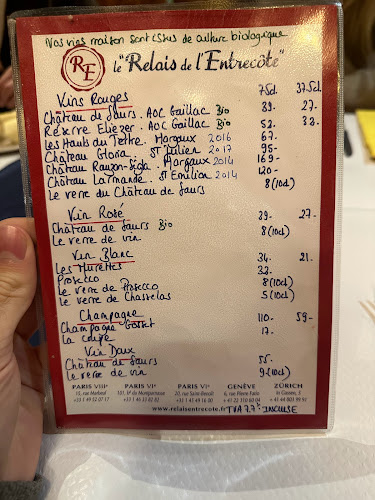 Nos vins maison sont issus de culture biologique
RE
le "Relais de l'Entrecôte"
Vins Rouges 75cl. 37.5cl.
Château de Saurs. AOC Gaillac Bio 39. 27.-
Réserve Eliezer. AOC Gaillac Bio 52. 38.-
Les Hauts du Tertre. Margaux 2016 67.-
Château Gloria. ST Julien 2017 95-
Château Rauzan-Ségla. Margaux 2014 169.-
Château Larmande. ST Emilion 2014 120-
Le verre du Château de Saurs 8(10cl)
Vin Rosé
Château de Saurs Bio 39- 27-
Le verre de vin 8(10cl)
Vin Blanc
Les Murettes 34. 21.
Prosecco 32.
Le verre de Prosecco 8(10cl)
Le verre de Chasselas 5(10cl)
Champagne
Champagne Gosset 110- 59-
La Coupe 17.
Vin Doux
Château de Saurs 55.
Le verre de vin 9(10cl)
PARIS VIIIe PARIS VIe PARIS VIe GENÈVE ZÜRICH
15, rue Marbeuf 101, Bd du Montparnasse 20, rue Saint-Benoît 6, rue Pierre Fatio
+33 1 49 52 07 17 +33 1 46 33 82 82 +33 1 45 49 16 00 +41 22 310 60 04
www.relaisentrecote.fr TVA 7.7% INCLUSE